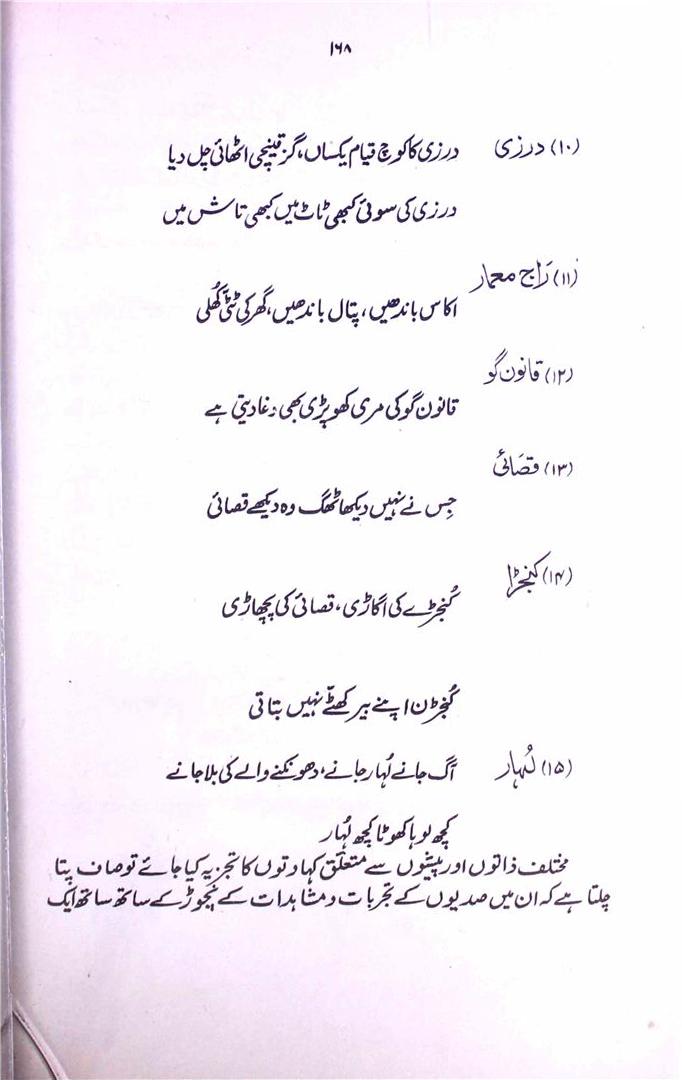 ۱۶۸
(۱۰) درزی درزی کا کوچ قیام یکساں، گز قینچی اٹھائی چل دیا
درزی کی سوئی کبھی ٹاٹ میں کبھی تاش میں
(۱۱) رَاج معمار
اکاس باندھیں، پتال باندھیں، گھر کی ٹٹی کُھلی
(۱۲) قانون گو
قانون گو کی مری کھوپڑی بھی دغا دیتی ہے
(۱۳) قصَائی
جِس نے نہیں دیکھا ٹھگ وہ دیکھے قصائی
(۱۴) کنجڑا
کُنجڑے کی اگاڑی، قصائی کی پچھاڑی
کُنجڑن اپنے بیر کھٹّے نہیں بتاتی
(۱۵) لُہار آگ جانے لُہار جانے، دھونکنے والے کی بلا جانے
کچھ لوہا کھوٹا کچھ لُہار
مختلف ذاتوں اور پیشوں سے متعلق کہاوتوں کا تجزیہ کیا جائے تو صاف پتا
چلتا ہے کہ ان میں صدیوں کے تجربات و مشاہدات کے نچوڑ کے ساتھ ساتھ ایک